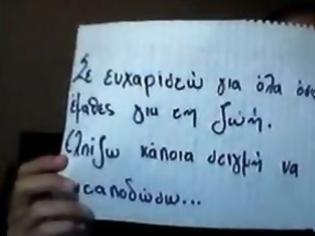 Σε ευχαριστώ για όλα όσα
έμαθες για τη ζωή.
Ελπίζω κάποια στιγμή να
ανταποδώσω...